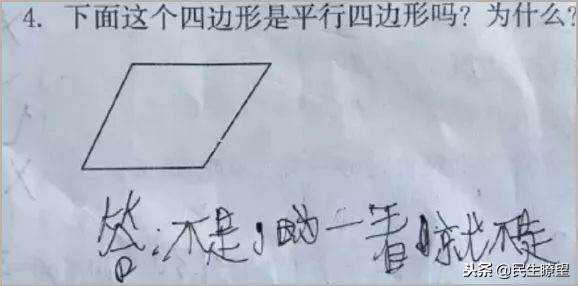 4. 下面这个四边形是平行四边形吗?为什么?
答:不是,因为一看就不是
头条 @民生瞭望